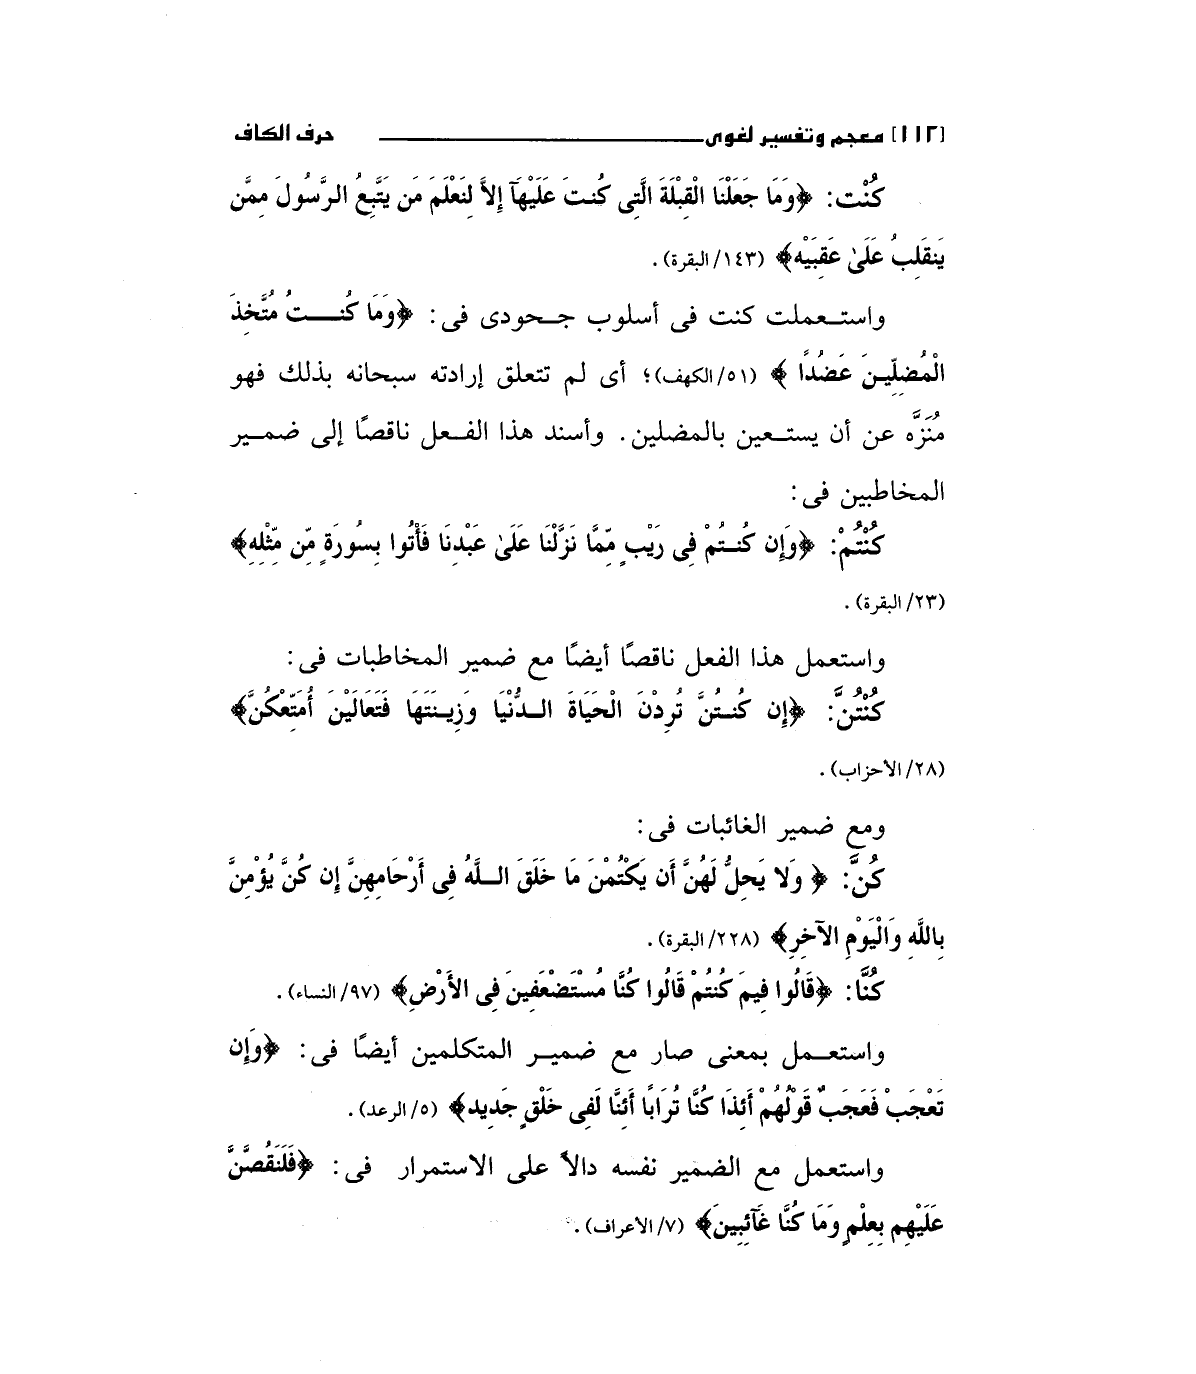 [١١٢] معجم وتفسير لغوى حرف الكاف
كُنْت: ﴿وَمَا جَعَلْنَا الْقِبْلَةَ الَّتِى كُنتَ عَلَيْهَآ إِلاَّ لِنَعْلَمَ مَن يَتَّبِعُ الرَّسُولَ مِمَّن
يَنقَلِبُ عَلَىٰ عَقِبَيْهِ﴾ (١٤٣/ البقرة).
واستعملت كنت فى أسلوب جحودى فى: ﴿وَمَا كُنتُ مُتَّخِذَ
الْمُضِلِّينَ عَضُدًا ﴾ (٥١/ الكهف)؛ أى لم تتعلق إرادته سبحانه بذلك فهو
مُنَزَّه عن أن يستعين بالمضلين. وأسند هذا الفعل ناقصًا إلى ضمير
المخاطبين فى:
كُنْتُمْ: ﴿وَإِن كُنتُمْ فِى رَيْبٍ مِّمَّا نَزَّلْنَا عَلَىٰ عَبْدِنَا فَأْتُوا بِسُورَةٍ مِّن مِّثْلِهِ﴾
(٢٣/ البقرة).
واستعمل هذا الفعل ناقصًا أيضًا مع ضمير المخاطبات فى:
كُنْتُنَّ: ﴿إِن كُنتُنَّ تُرِدْنَ الْحَيَاةَ الدُّنْيَا وَزِينَتَهَا فَتَعَالَيْنَ أُمَتِّعْكُنَّ﴾
(٢٨/ الأحزاب).
ومع ضمير الغائبات فى:
كُنَّ: ﴿ وَلا يَحِلُّ لَهُنَّ أَن يَكْتُمْنَ مَا خَلَقَ اللَّهُ فِى أَرْحَامِهِنَّ إِن كُنَّ يُؤْمِنَّ
بِاللَّهِ وَالْيَوْمِ الآخِرِ﴾ (٢٢٨/ البقرة).
كُنَّا: ﴿قَالُوا فِيمَ كُنتُمْ قَالُوا كُنَّا مُسْتَضْعَفِينَ فِى الأَرْضِ﴾ (٩٧/ النساء).
واستعمل بمعنى صار مع ضمير المتكلمين أيضًا فى: ﴿وَإِن
تَعْجَبْ فَعَجَبٌ قَوْلُهُمْ أَئِذَا كُنَّا تُرَابًا أَئِنَّا لَفِى خَلْقٍ جَدِيد﴾ (٥/ الرعد).
واستعمل مع الضمير نفسه دالاً على الاستمرار فى: ﴿فَلَنَقُصَّنَّ
عَلَيْهِم بِعِلْمٍ وَمَا كُنَّا غَآئِبِينَ﴾ (٧/ الأعراف).